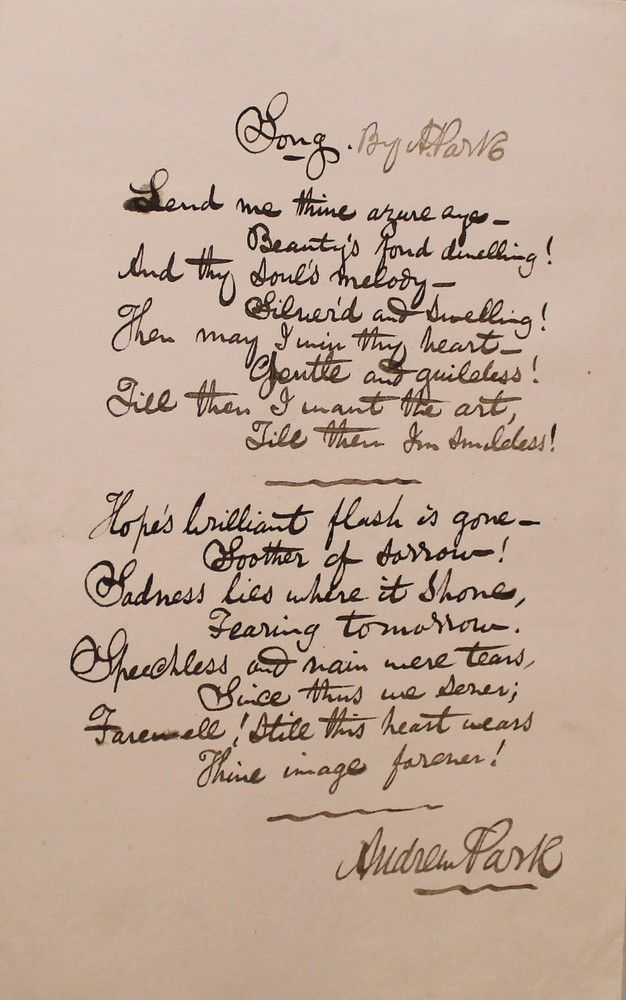 Song. By A. Park
Lend me thine azure eye—
Beauty's fond dwelling!
And thy Soul's melody—
Silver'd and swelling!
Then may I win thy heart—
Gentle and guileless!
Till then I want the art,
Till then I'm smileless!
Hope's brilliant flash is gone—
Soother of sorrow—!
Sadness lies where it shone,
Fearing tomorrow.
Speechless and vain were tears,
Since thus we sever;
Farewell! Still this heart wears
Thine image forever!
Andrew Park